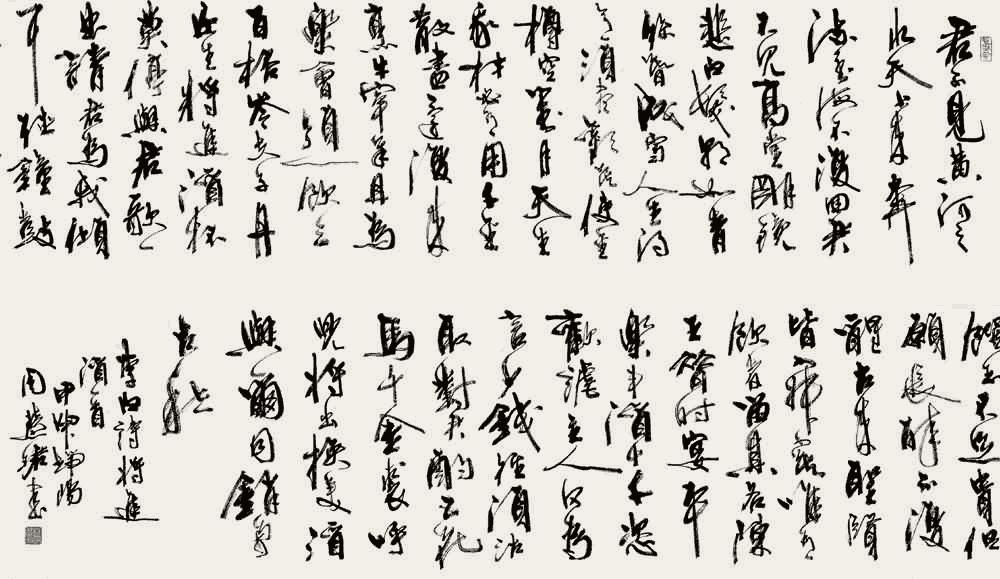 君不見黃河之
水天上來奔
流到海不復回君
不見高堂明鏡
悲白髮朝如青
絲暮成雪人生得
意須盡歡莫使金
樽空對月天生
我材必有用千金
散盡還復來
烹羊宰牛且為
樂會須一飲三
百杯岑夫子丹
丘生將進酒杯
莫停與君歌一
曲請君為我傾
耳聽鐘鼓
饌玉不足貴但
願長醉不復
醒古來聖賢
皆寂寞唯有
飲者留其名陳
王昔時宴平
樂斗酒十千恣
歡謔主人何為
言少錢徑須沽
取對君酌五花
馬千金裘呼
兒將出換美酒
與爾同銷萬
古愁
李白詩將進
酒一首
甲申端陽
周慧珺書